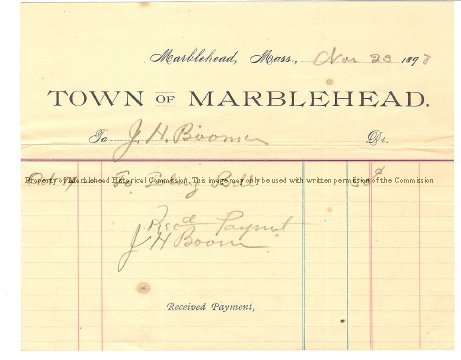 Marblehead, Mass., Nov 23 189
TOWN OF MARBLEHEAD.
To J. H. Boomer Dr.
Property of Marblehead Historical Commission. This image may only be used with written permission of the Commission
To
Recd Paymt
J H Boomer
Received Payment,